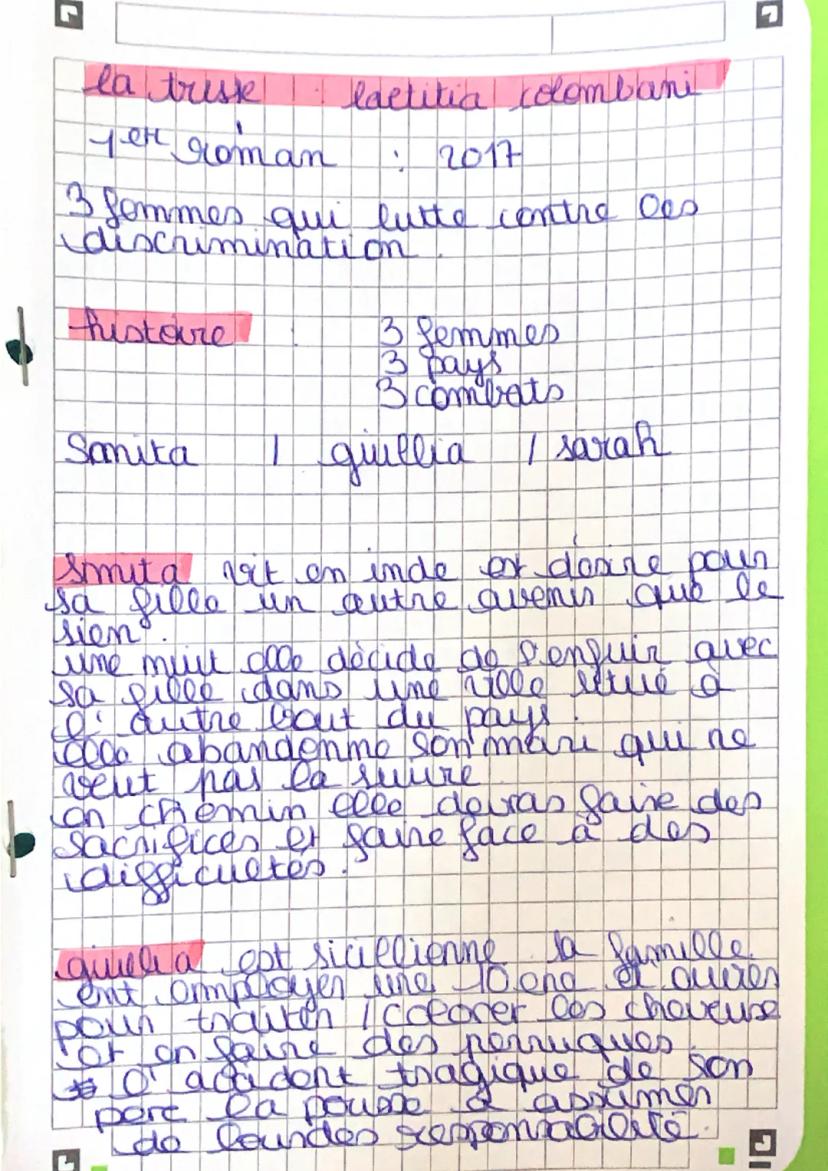 la tresse : laetitia colombani
1er roman : 2017
3 femmes qui lutte contre les
discrimination.
histoire : 3 femmes
3 pays
3 combats
Samita / giullia / sarah
Smita vit en inde et désire pour
sa fille un autre avenir que le
sien.
une nuit elle décide de s'enfuir avec
sa fille dans une ville situé à
l'autre bout du pays.
elle abandonne son mari qui ne
veut pas la suivre
en chemin elle devras faire des
sacrifices et faire face à des
difficultés.
giulia est sicillienne sa famille
ont employer une 10end et ouvres
pour traiter / colorer les cheveuse
et en faire des perruques.
l'acident tragique de son
pere la pousse à assumer
de lourdes responsabilité.